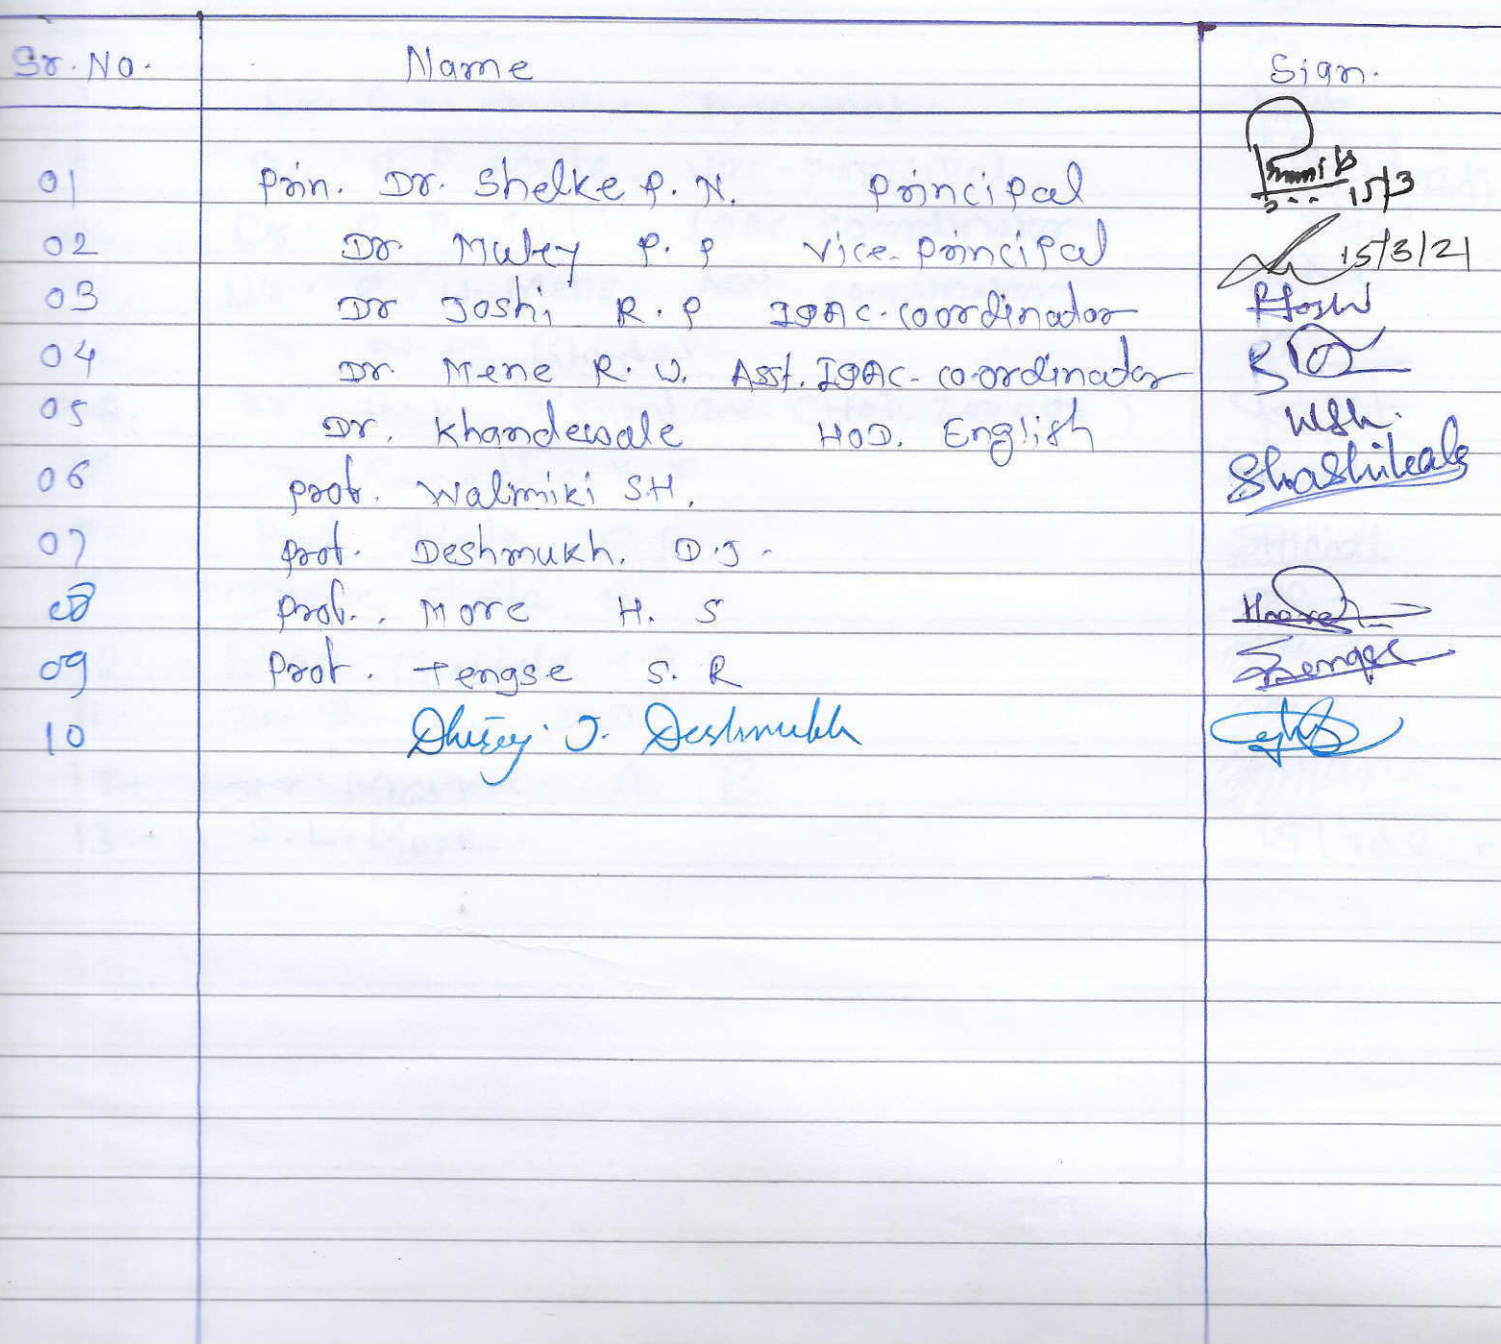 Sr. No. Name Sign.
01 Prin. Dr. Shelke P. N. Principal 15/3
02 Dr. Muley P. P Vice-Principal 15/3/21
03 Dr Joshi R. P IQAC-Coordinador
04 Dr. Mene R. V. Asst. IQAC-Co-ordinador
05 Dr. Khandewale HOD. English
06 Prof. Walimiki S.H. Shashikala
07 Prof. Deshmukh. D.J.
08 Prof. More H. S
09 Prof. Tengse S. R Tengse
10 J. Deshmukh